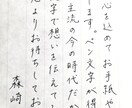 心を込めてお手紙や
します。ペン文字が得
主流の今の時代だか
字で想いを伝え
心よりお待ちしてお
森崎